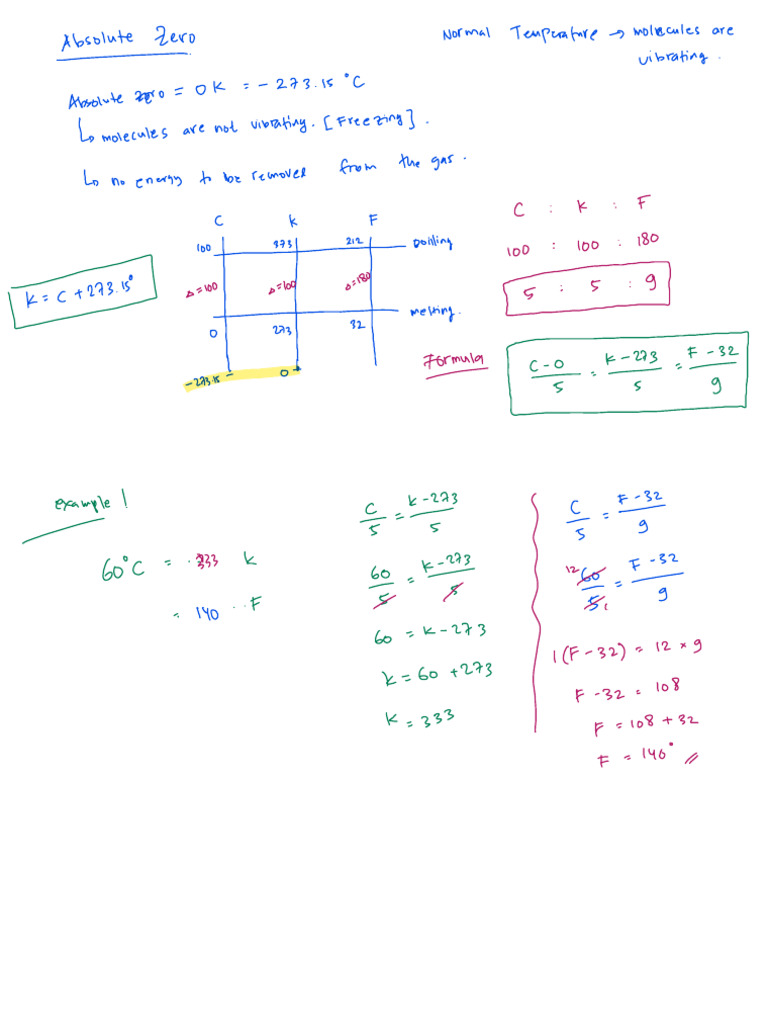 Absolute Zero
Normal Temperature → molecules are
vibrating.
Absolute zero = 0 K = - 273.15 °C
↳ molecules are not vibrating. [Freezing].
↳ no energy to be removed from the gas.
C K F
100 373 212 Boiling
Δ=100 Δ=100 Δ=180
0 273 32 melting.
-273.15 0
K = C + 273.15°
C : K : F
100 : 100 : 180
5 : 5 : 9
Formula
C-0/5 = K-273/5 = F-32/9
example 1
60°C = 333 K
= 140 F
C/5 = K-273/5
60/5 = K-273/5
60 = K-273
K = 60 + 273
K = 333
C/5 = F-32/9
12 60/5 1 = F-32/9
1(F-32) = 12 × 9
F-32 = 108
F = 108 + 32
F = 140°